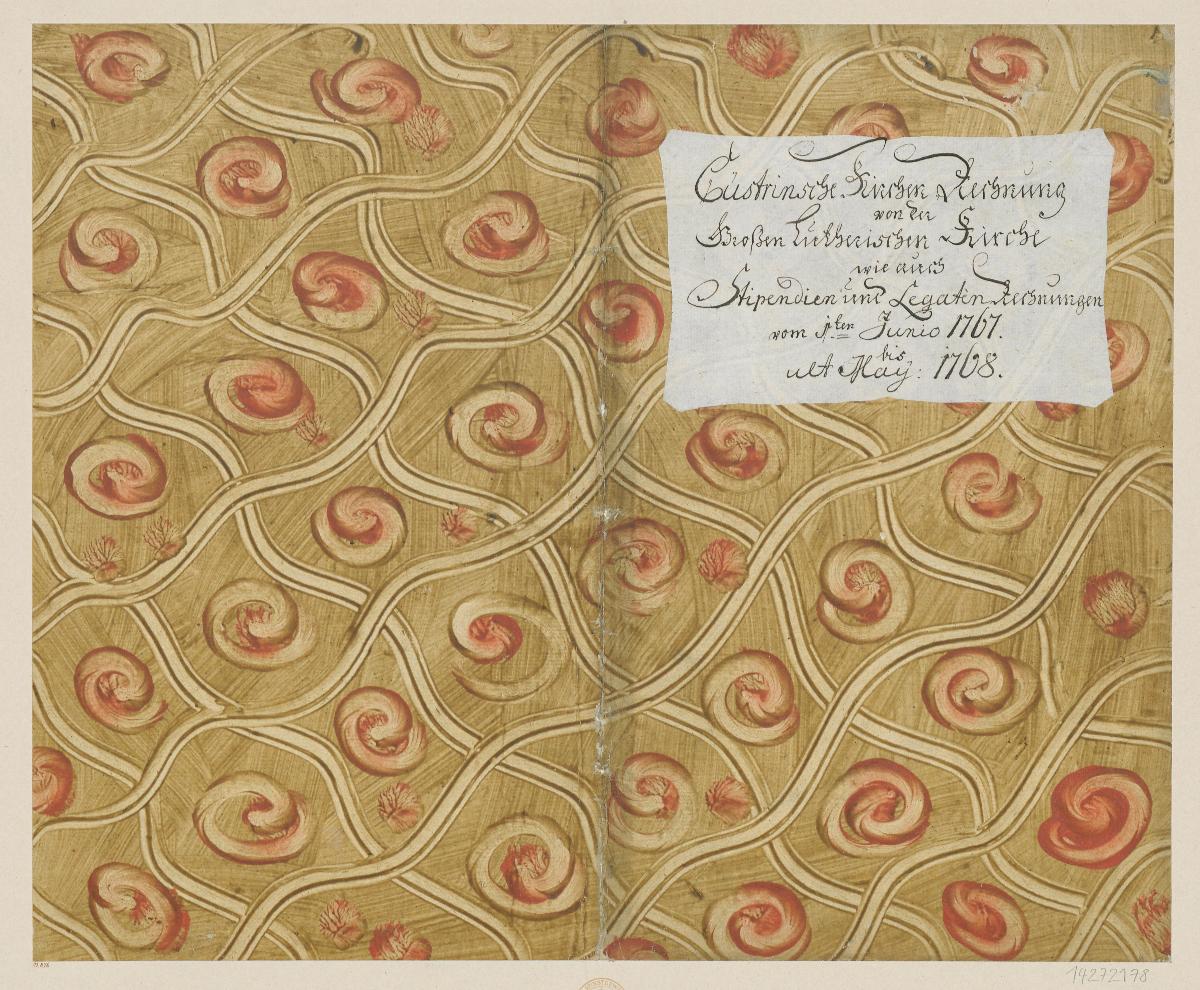 Cüstrinsche Kirchen Rechnung
von der
Großen Lutherischen Kirche
wie auch
Stipendien und Legaten Rechnungen
vom 1ten Junio 1767.
bis
ult May: 1768.
14272178